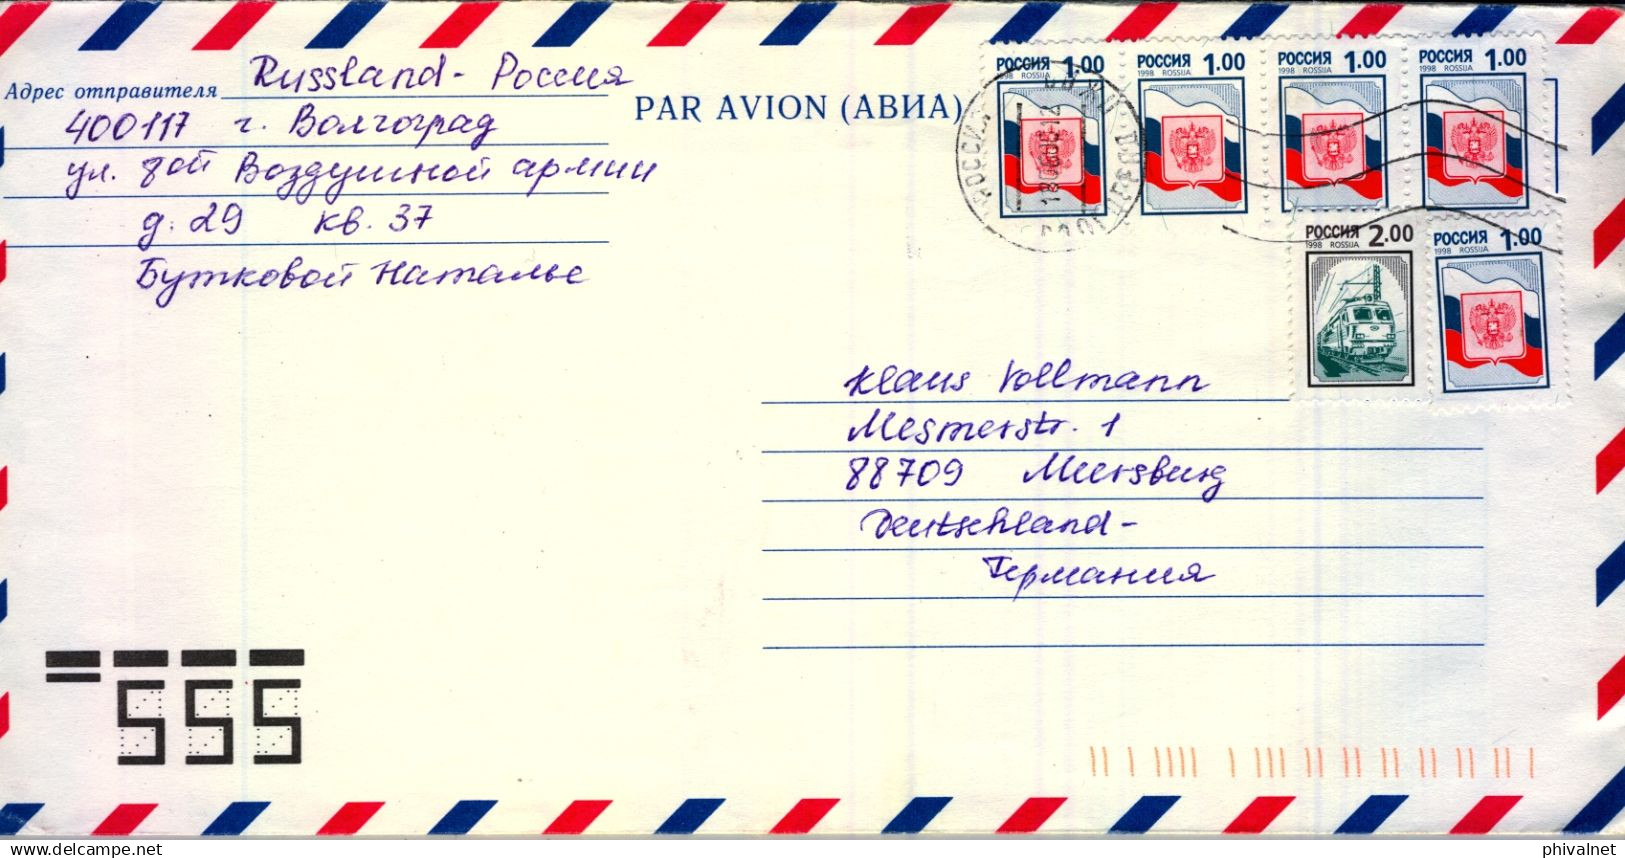 Адрес отправителя Russland - Россия
400117 г. Волгоград
ул. 8ой Воздушной армии
д. 29 кв. 37
Бутковой Наталье
PAR AVION (АВИА)
РОССИЯ 1.00
1998 ROSSIJA
РОССИЯ 1.00
1998 ROSSIJA
РОССИЯ 1.00
1998 ROSSIJA
РОССИЯ 1.00
1998 ROSSIJA
РОССИЯ 2.00
1998 ROSSIJA
РОССИЯ 1.00
1998 ROSSIJA
РОССИЯ
Klaus Vollmann
Mesmerstr. 1
88709 Meersburg
Deutschland -
Германия
555
delcampe.net
phivalnet